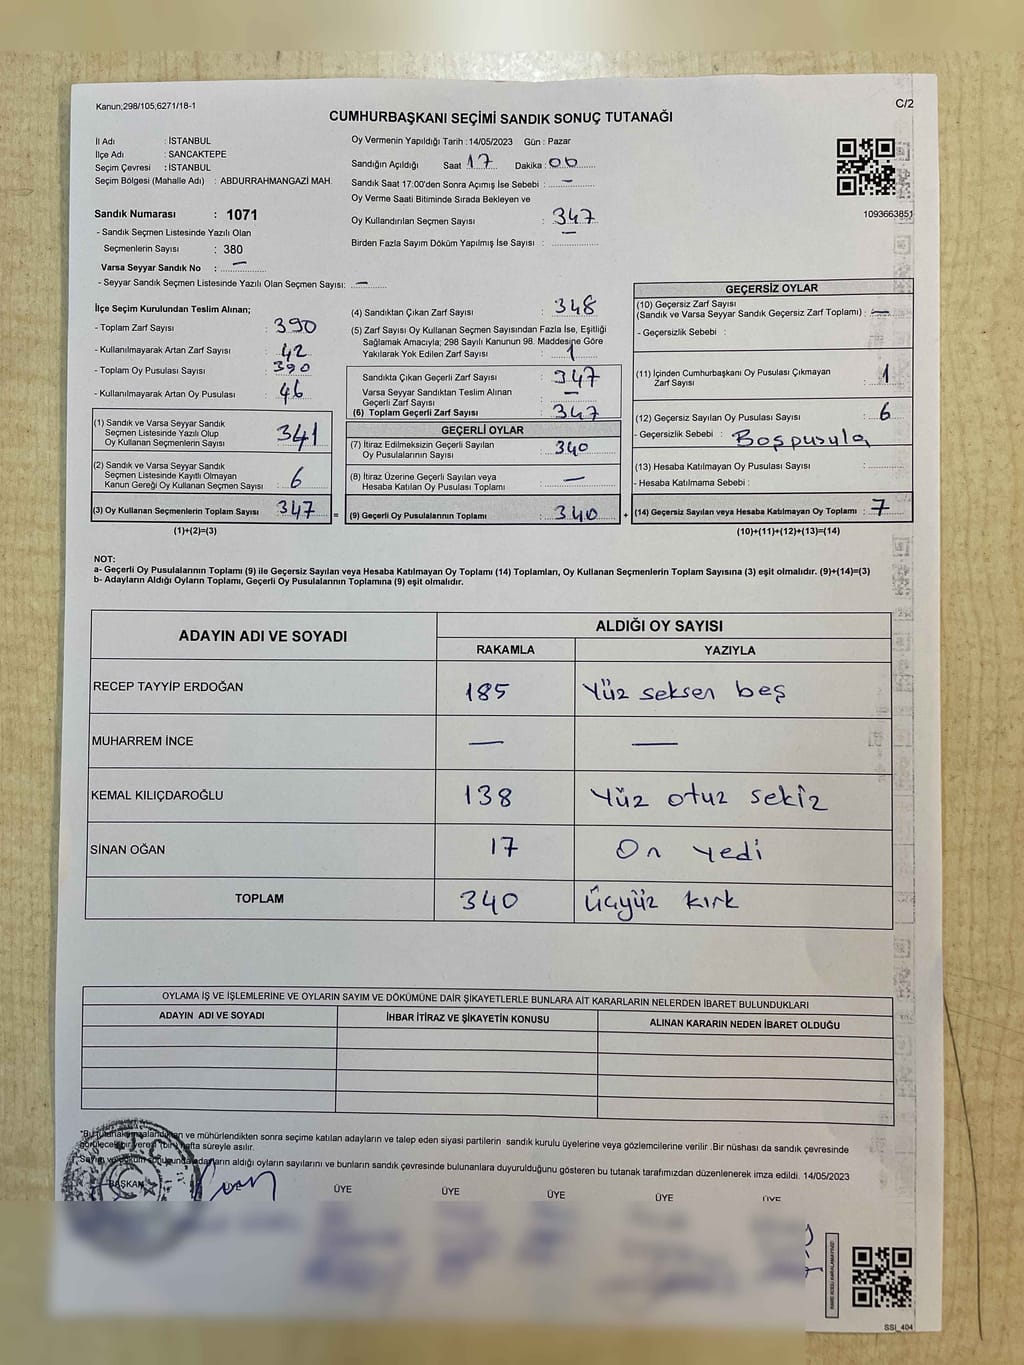 Kanun,298/105,6271/18-1
C/2
CUMHURBAŞKANI SEÇİMİ SANDIK SONUÇ TUTANAĞI
İl Adı : İSTANBUL
İlçe Adı : SANCAKTEPE
Seçim Çevresi : İSTANBUL
Seçim Bölgesi (Mahalle Adı) : ABDURRAHMANGAZİ MAH.
Sandık Numarası : 1071
- Sandık Seçmen Listesinde Yazılı Olan
Seçmenlerin Sayısı : 380
Varsa Seyyar Sandık No : —
- Seyyar Sandık Seçmen Listesinde Yazılı Olan Seçmen Sayısı: —
Oy Vermenin Yapıldığı Tarih :14/05/2023 Gün : Pazar
Sandığın Açıldığı Saat 17 Dakika : 00
Sandık Saat 17:00'den Sonra Açımış İse Sebebi : —
Oy Verme Saati Bitiminde Sırada Bekleyen ve
Oy Kullandırılan Seçmen Sayısı : 347
Birden Fazla Sayım Döküm Yapılmış İse Sayısı : —
1093663851
İlçe Seçim Kurulundan Teslim Alınan;
- Toplam Zarf Sayısı : 390
- Kullanılmayarak Artan Zarf Sayısı : 42
- Toplam Oy Pusulası Sayısı : 390
- Kullanılmayarak Artan Oy Pusulası : 46
(1) Sandık ve Varsa Seyyar Sandık
Seçmen Listesinde Yazılı Olup
Oy Kullanan Seçmenlerin Sayısı : 341
(2) Sandık ve Varsa Seyyar Sandık
Seçmen Listesinde Kayıtlı Olmayan
Kanun Gereği Oy Kullanan Seçmen Sayısı : 6
(3) Oy Kullanan Seçmenlerin Toplam Sayısı : 347
(1)+(2)=(3)
(4) Sandıktan Çıkan Zarf Sayısı : 348
(5) Zarf Sayısı Oy Kullanan Seçmen Sayısından Fazla İse, Eşitliği
Sağlamak Amacıyla; 298 Sayılı Kanunun 98. Maddesine Göre
Yakılarak Yok Edilen Zarf Sayısı : 1
Sandıkta Çıkan Geçerli Zarf Sayısı : 347
Varsa Seyyar Sandıktan Teslim Alınan
Geçerli Zarf Sayısı : —
(6) Toplam Geçerli Zarf Sayısı : 347
GEÇERLİ OYLAR
(7) İtiraz Edilmeksizin Geçerli Sayılan
Oy Pusulalarının Sayısı : 340
(8) İtiraz Üzerine Geçerli Sayılan veya
Hesaba Katılan Oy Pusulası Toplamı : —
= (9) Geçerli Oy Pusulalarının Toplamı : 340
GEÇERSİZ OYLAR
(10) Geçersiz Zarf Sayısı
(Sandık ve Varsa Seyyar Sandık Geçersiz Zarf Toplamı) : —
- Geçersizlik Sebebi :
(11) İçinden Cumhurbaşkanı Oy Pusulası Çıkmayan
Zarf Sayısı : 1
(12) Geçersiz Sayılan Oy Pusulası Sayısı : 6
- Geçersizlik Sebebi : Boşpusula
(13) Hesaba Katılmayan Oy Pusulası Sayısı :
- Hesaba Katılmama Sebebi :
+ (14) Geçersiz Sayılan veya Hesaba Katılmayan Oy Toplamı : 7
(10)+(11)+(12)+(13)=(14)
NOT:
a- Geçerli Oy Pusulalarının Toplamı (9) ile Geçersiz Sayılan veya Hesaba Katılmayan Oy Toplamı (14) Toplamları, Oy Kullanan Seçmenlerin Toplam Sayısına (3) eşit olmalıdır. (9)+(14)=(3)
b- Adayların Aldığı Oyların Toplamı, Geçerli Oy Pusulalarının Toplamına (9) eşit olmalıdır.
ADAYIN ADI VE SOYADI
ALDIĞI OY SAYISI
RAKAMLA YAZIYLA
RECEP TAYYİP ERDOĞAN 185 Yüz seksen beş
MUHARREM İNCE — —
KEMAL KILIÇDAROĞLU 138 Yüz otuz sekiz
SİNAN OĞAN 17 On yedi
TOPLAM 340 üçyüz kırk
OYLAMA İŞ VE İŞLEMLERİNE VE OYLARIN SAYIM VE DÖKÜMÜNE DAİR ŞİKAYETLERLE BUNLARA AİT KARARLARIN NELERDEN İBARET BULUNDUKLARI
ADAYIN ADI VE SOYADI İHBAR İTİRAZ VE ŞİKAYETİN KONUSU ALINAN KARARIN NEDEN İBARET OLDUĞU
ve mühürlendikten sonra seçime katılan adayların ve talep eden siyasi partilerin sandık kurulu üyelerine veya gözlemcilerine verilir .Bir nüshası da sandık çevresinde
hafta süreyle asılır.
adayların aldığı oyların sayılarını ve bunların sandık çevresinde bulunanlara duyurulduğunu gösteren bu tutanak tarafımızdan düzenlenerek imza edildi. 14/05/2023
BAŞKAN ÜYE ÜYE ÜYE ÜYE ÜYE ÜYE
SSI_404